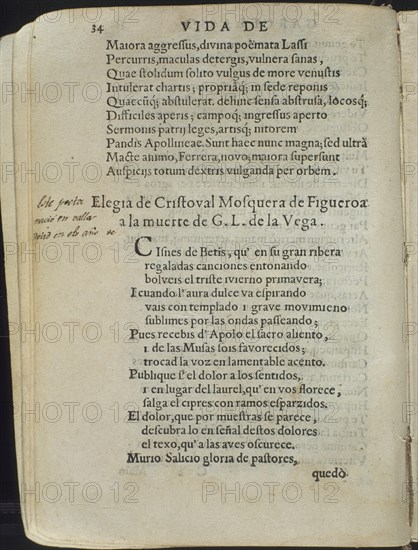 34 VIDA DE
Maiora aggressus, divina poëmata Lassi
Percurris, maculas detergis, vulnera sanas,
Quae stolidum solito vulgus de more venustis
Intulerat chartis; propriáq; in sede reponis
Quaecũq; abstulerat. dehinc sensa abstrusa, locosq;
Difficiles aperis; campoq; ingressus aperto
Sermonis patrij leges, artisq; nitorem
Pandis Apollineae. Sunt haec nunc magna; sed ultrà
Macte animo, Ferrera, novo; maiora supersunt
Auspicijs totum dextris vulganda per orbem.
Este poeta
nacio en valla
dolid en
Elegia de Cristoval Mosquera de Figueroa
a la muerte de G. L. de la Vega.
CIsnes de Betis, qu'en su gran ribera
regaladas canciones entonando
bolveis el triste ivierno primavera;
I cuando l'aura dulce va espirando
vais con templado i grave movimiẽto
sublimes por las ondas passeando;
Pues recebis d'Apolo el sacro aliento,
i de las Musas sois favorecidos;
trocad la voz en lamentable acento.
Publique s'el dolor a los sentidos,
i en lugar del laurel, qu'en vos florece,
salga el cipres con ramos esparzidos.
El dolor, que por muestras se parece,
descubra lo en señal destos dolores
el texo, qu'a las aves oscurece.
Murio Salicio gloria de pastores,
quedò